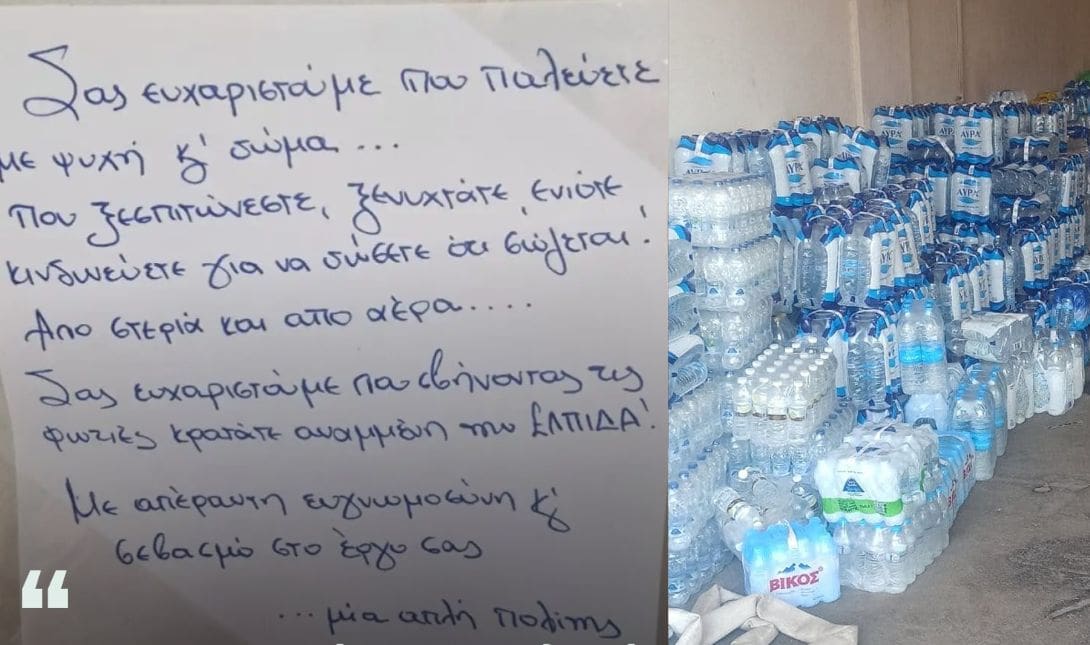 Σας ευχαριστούμε που παλεύετε
με ψυχή κ' σώμα...
που ξεσπιτώνεστε, ξενυχτάτε, ενίοτε
κινδυνεύετε για να σώσετε ότι σώζεται!
Απο στεριά και απο αέρα....
Σας ευχαριστούμε που σβήνοντας τις
φωτιές κρατάτε αναμμένη την ΕΛΠΙΔΑ!
Με απέραντη ευγνωμοσύνη κ'
σεβασμό στο έργο σας
...μία απλή πολίτης
“
ΑΥΡΑ
ΑΥΡΑ
ΑΥΡΑ
ΒΙΚΟΣ